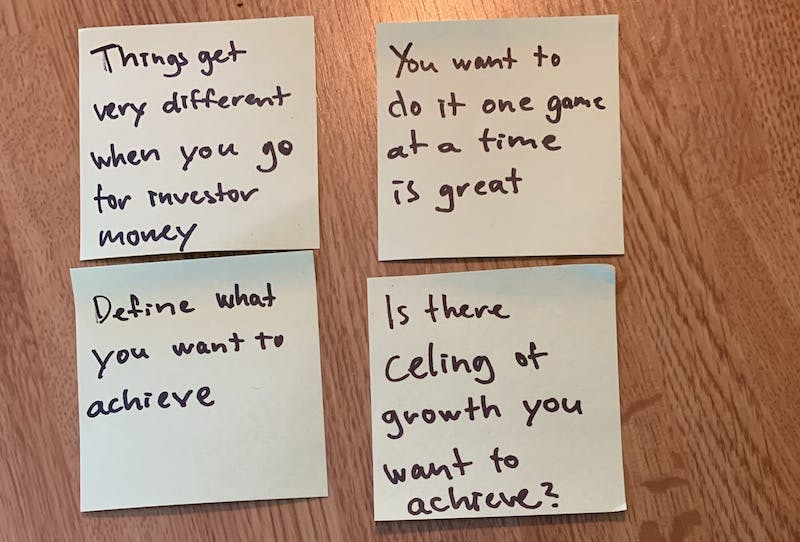 Things get
very different
when you go
for investor
money
You want to
do it one game
at a time
is great
Define what
you want to
achieve
Is there
Celing of
growth you
want to
achieve?